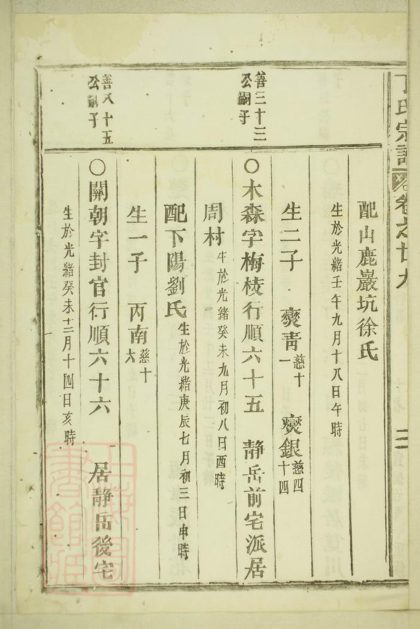 丁氏宗譜 卷之廿九 三
配山鹿巖坑徐氏
生於光緒壬午九月十八日午時
生二子 奭靑慈十一 奭銀慈四十四
善三十三公嗣子
○木森字梅棱行順六十五 靜岳前宅派居
周村生於光緒癸未九月初八日酉時
配下陽劉氏生於光緒庚辰七月初三日申時
生一子 丙南慈十六
善八十五公嗣子
○關朝字封官行順六十六 居靜岳後宅
生於光緒癸未十二月十四日亥時